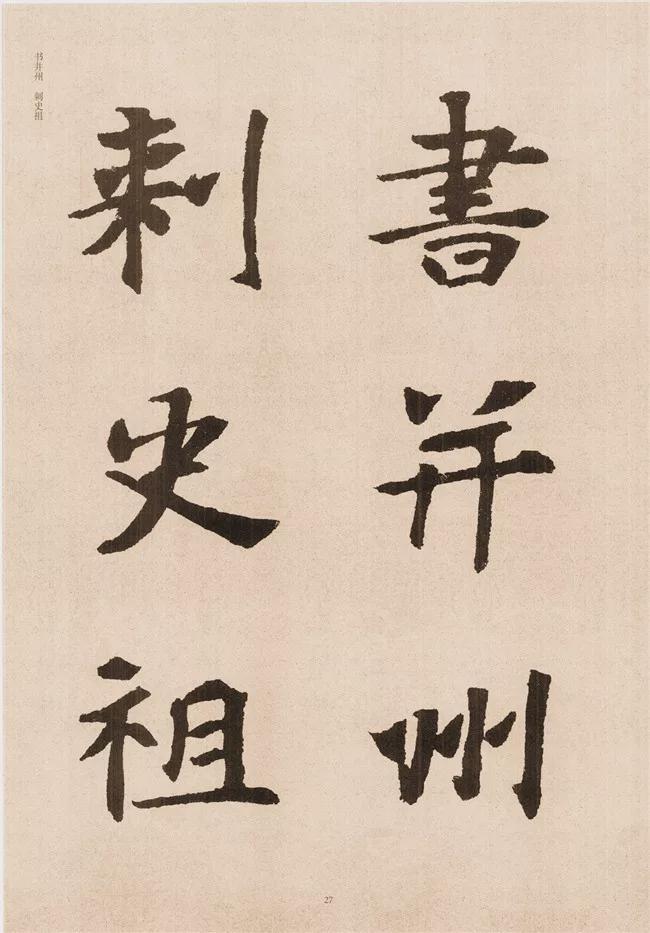 書并州
刺史祖
书并州 刺史祖
27